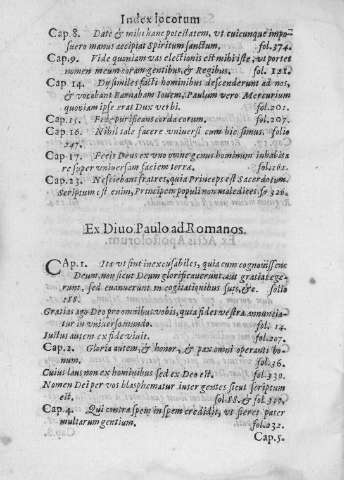 Index locorum
Cap. 8. Date & mihi hanc potestatem, vt cuicunque impo-
suero manus accipiat Spiritum sanctum, fol. 374.
Cap. 9. Vade quoniam vas electionis est mihi iste, vt portet
nomen meum coram gentibus, & Regibus. fol. 121.
Cap 14. Dij similes facti hominibus descenderunt ad nos,
& vocabant Barnabam Iouem, Paulum vero Mercurium
quoniam ipse erat Dux verbi. fol. 201.
Cap. 15. Fide purificans corda eorum. fol. 207.
Cap. 16. Nihil tale facere vniuersi cum hic simus. folio
247.
Cap. 17. Fecit Deus ex vno omne genus hominum inhabita
re super vniuersam faciem terræ. fol. 262.
Cap. 23. Nesciebam fratres, quia Princeps est Sacerdotum.
Scriptum est enim, Principem populi non maledices. fo 326.
Ex Diuo. Paulo ad Romanos.
CAp. 1. Ita vt sint inexcusabiles, quia cum cognouissent
Deum, non sicut Deum glorificauerunt, aut gratias ege-
runt, sed euanuerunt in cogitationibus suis, &c. folio
188.
Gratias ago Deo pro omnibus vobis, quia fides vestra annuncia-
tur in vniuerso mundo. fol. 14.
Iustus autem ex fide viuit. fol. 207.
Cap. 2. Gloria autem, & honor, & pax omni operanti bo-
num. fol. 36.
Cuius laus non ex hominibus sed ex Deo est. fol. 330.
Nomen Dei per vos blasphematur inter gentes sicut scriptum
est. fol. 88. & fol.
Cap. 4. Qui contra spem in spem credidit, vt fieret pater
multarum gentium. fol. 232.
Cap. 5.